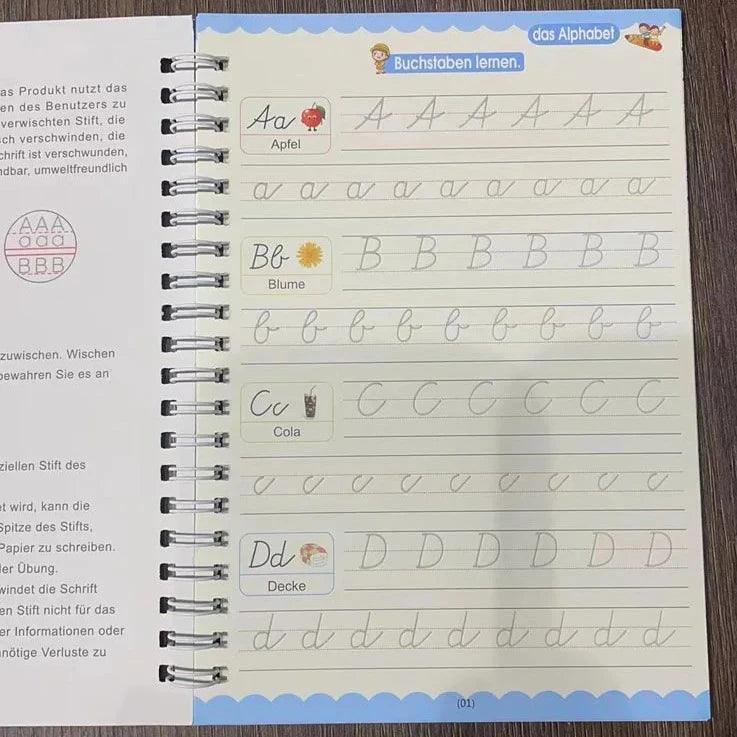 as Produkt nutzt das
en des Benutzers zu
verwischten Stift, die
ch verschwinden, die
chrift ist verschwunden,
ndbar, umweltfreundlich
AAA
aaa
BBB
zuwischen. Wischen
bewahren Sie es an
ziellen Stift des
et wird, kann die
Spitze des Stifts,
Papier zu schreiben.
der Übung.
windet die Schrift
en Stift nicht für das
er Informationen oder
nnötige Verluste zu
das Alphabet
Buchstaben lernen.
Aa
Apfel
A A A A A A
a a a a a a a a a
Bb
Blume
B B B B B B
b b b b b b b b b
Cc
Cola
C C C C C C
c c c c c c c c c
Dd
Decke
D D D D D D
d d d d d d d d d
(01)